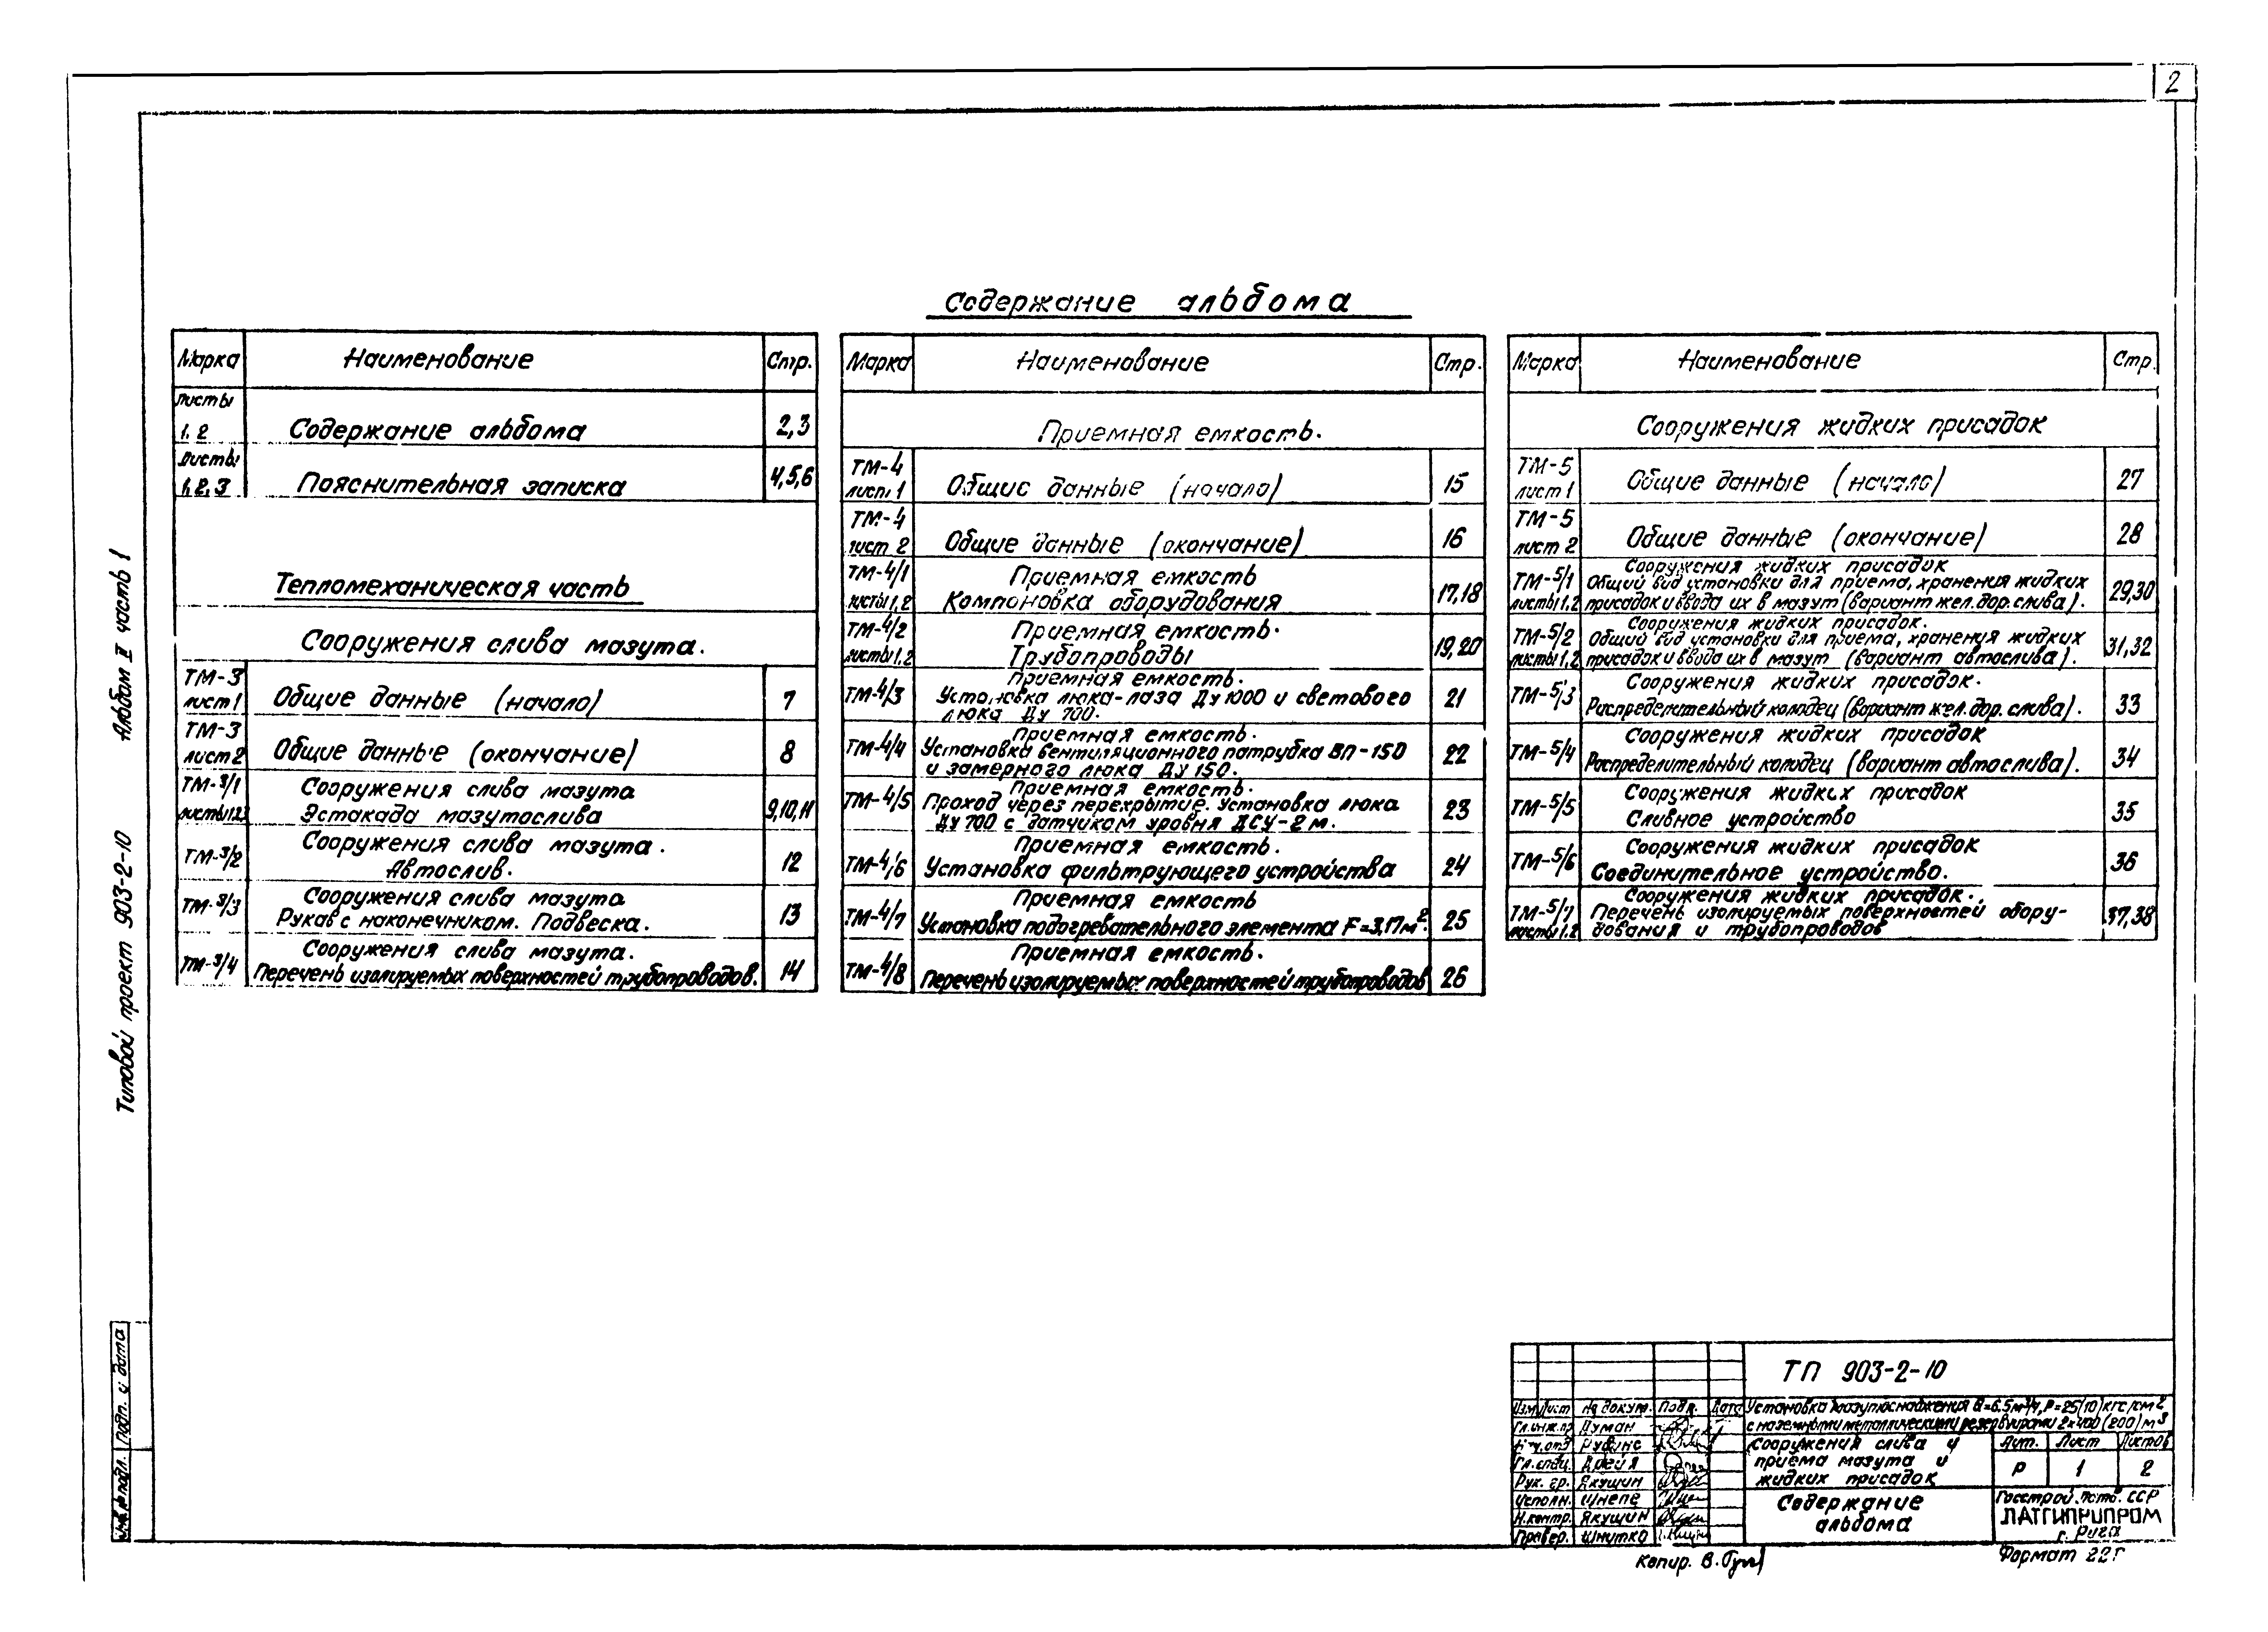 2
Содержание альбома
Марка Наименование Стр.
Листы
1, 2 Содержание альбома 2,3
Листы
1, 2, 3 Пояснительная записка 4,5,6
Тепломеханическая часть
Сооружения слива мазута.
ТМ-3
лист 1 Общие данные (начало) 7
ТМ-3
лист 2 Общие данные (окончание) 8
ТМ-3/1 Сооружения слива мазута
листы 1,2,3 Эстакада мазутослива 9,10,11
Сооружения слива мазута.
ТМ-3/2 Автослив. 12
Сооружения слива мазута
ТМ-3/3 Рукав с наконечником. Подвеска. 13
Сооружения слива мазута.
ТМ-3/4 Перечень изолируемых поверхностей трубопроводов. 14
Марка Наименование Стр.
Приемная емкость.
ТМ-4
лист 1 Общие данные (начало) 15
ТМ-4
лист 2 Общие данные (окончание) 16
ТМ-4/1 Приемная емкость
листы 1,2 Компоновка оборудования 17,18
ТМ-4/2 Приемная емкость.
листы 1,2 Трубопроводы 19,20
Приемная емкость.
ТМ-4/3 Установка люка-лаза Ду 1000 и светового 21
люка Ду 700.
Приемная емкость.
ТМ-4/4 Установка вентиляционного патрубка ВП-150 22
и замерного люка Ду 150.
Приемная емкость.
ТМ-4/5 Проход через перекрытие. Установка люка 23
Ду 700 с датчиком уровня ДСУ-2м.
Приемная емкость.
ТМ-4/6 Установка фильтрующего устройства 24
Приемная емкость
ТМ-4/7 Установка подогревательного элемента F=3,17м². 25
Приемная емкость.
ТМ-4/8 Перечень изолируемых поверхностей трубопроводов 26
Марка Наименование Стр.
Сооружения жидких присадок
ТМ-5
лист 1 Общие данные (начало) 27
ТМ-5
лист 2 Общие данные (окончание) 28
Сооружения жидких присадок
ТМ-5/1 Общий вид установки для приема, хранения жидких 29,30
листы 1,2 присадок и ввода их в мазут (вариант жел. дор. слива).
Сооружения жидких присадок.
ТМ-5/2 Общий вид установки для приема, хранения жидких 31,32
листы 1,2 присадок и ввода их в мазут (вариант автослива).
Сооружения жидких присадок.
ТМ-5/3 Распределительный колодец (вариант жел. дор. слива). 33
Сооружения жидких присадок
ТМ-5/4 Распределительный колодец (вариант автослива). 34
Сооружения жидких присадок
ТМ-5/5 Сливное устройство 35
Сооружения жидких присадок
ТМ-5/6 Соединительное устройство. 36
Сооружения жидких присадок.
ТМ-5/7 Перечень изолируемых поверхностей обору- 37,38
листы 1,2 дования и трубопроводов
Типовой проект 903-2-10 Альбом II часть 1
Инв.№ подл. Подп. и дата
ТП 903-2-10
Изм. Лист № докум. Подп. Дата
Установка мазутоснабжения Q=6.5м³/ч, P=25(10)кгс/см²
с наземными металлическими резервуарами 2х400(200)м³
Гл.инж.пр. Думан
Рудинс
Гл. спец. Дрейя
Рук. гр. Якушин
Исполн. Шнепе
Н.контр. Якушин
Провер. Шнитко
Сооружения слива и
приема мазута и
жидких присадок
Лит. Лист Листов
Р 1 2
Содержание
альбома
Госстрой Латв. ССР
ЛАТГИПРОПРОМ
г. Рига
Копир. В.
Формат 22г